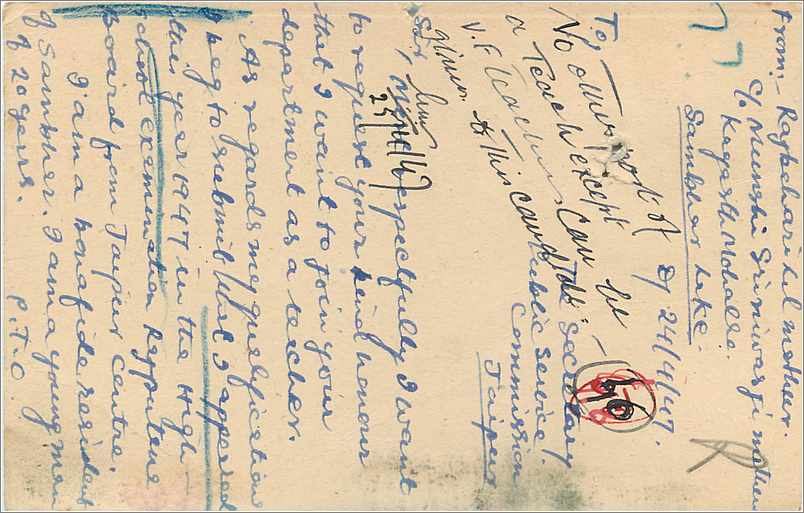 From:- Rajbeharilal mathur.
C/o Munshi Sriniwasji mathur
Kayasth Mohalla.
Sambhar Lake
D/ 24/4/47.
To,
The Secretary
Public Service
Commission
Jaipur
Sir,
Most respectfully I want
to request your kind honour
that I want to join your
department as a teacher.
As regards my qualification
I beg to submit that I appeared
this year 1947 in the High-
school examination Rajputana
Board from Jaipur Centre.
I am a bonafide resident
of Sambhar. I am a young man
of 20 years.
P.T.O.
No other post of
a Teach except
V.F. Teacher can be
given to this candidate
56